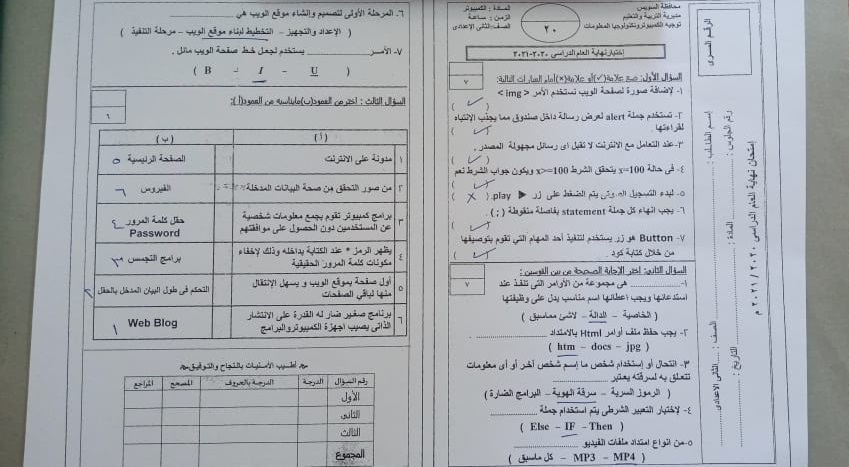 محافظة السويس
مديرية التربية والتعليم
توجيه الكمبيوتر وتكنولوجيا المعلومات
٢٠
المادة : الكمبيوتر
الزمن : ساعة
الصف: الثانى الاعدادى
إختبار نهاية العام الدراسى ٢٠٢٠-٢٠٢١
الرقم السرى
إمتحان نهاية العام الدراسى ٢٠٢٠ / ٢٠٢١ م
رقم الجلوس :
المادة :
التاريخ :
إسم الطالب :
الصف : الثانى الاعدادى
السؤال الأول: ضع علامة(✓)أو علامة(×)أمام العبارات التالية:
٧
١- لإضافة صورة لصفحة الويب نستخدم الأمر < img >
( ✓ )
٢- تستخدم جملة alert لعرض رسالة داخل صندوق مما يجذب الإنتباه
لقراءتها . ( ✓ )
٣-عند التعامل مع الانترنت لا تقبل اى رسائل مجهولة المصدر.
( ✓ )
٤- فى حالة x=100 يتحقق الشرط x>=100 ويكون جواب الشرط نعم
( ✓ )
٥- لبدء التسجيل الصوتى يتم الضغط على زر ▶ play. ( X )
٦- يجب انهاء كل جملة statement بفاصلة منقوطة ( ; ) .
( ✓ )
٧- Button هو زر يستخدم لتنفيذ أحد المهام التي تقوم بتوصيفها
من خلال كتابة كود . ( ✓ )
السؤال الثانى: اختر الإجابة الصحيحة من بين القوسين :
٧
١-............ هى مجموعة من الأوامر التى تنفذ عند
استدعائها ويجب اعطائها اسم مناسب يدل على وظيفتها
( الخاصية – الدالة – لاشئ مماسبق )
٢- يجب حفظ ملف أوامر Html بالامتداد ............
( htm – docs – jpg )
٣- انتحال أو إستخدام شخص ما إسم شخص أخر أو أى معلومات
تتعلق به لسرقته يعتبر ............
( الرموز السرية – سرقة الهوية – البرامج الضارة )
٤- لإختبار التعبير الشرطى يتم استخدام جملة ............
( Else – IF – Then )
٥-من انواع امتداد ملفات الفيديو ............
( MP4 – MP3 – كل ماسبق )
٦- المرحلة الأولى لتصميم وإنشاء موقع الويب هي ............
( الإعداد والتجهيز – التخطيط لبناء موقع الويب – مرحلة التنفيذ )
٧- الأمر............ يستخدم لجعل خط صفحة الويب مائل .
( B - I - U )
السؤال الثالث : اختر من العمود(ب)مايناسبه من العمود(أ):
٦
( أ )
( ب )
١ مدونة على الانترنت
الصفحة الرئيسية ٥
٢ من صور التحقق من صحة البيانات المدخلة
الفيروس ٦
٣ برامج كمبيوتر تقوم بجمع معلومات شخصية
عن المستخدمين دون الحصول على موافقتهم
حقل كلمة المرور ٤
Password
٤ يظهر الرمز * عند الكتابة بداخله وذلك لإخفاء
مكونات كلمة المرور الحقيقية
برامج التجسس ٣
٥ أول صفحة بموقع الويب و يسهل الإنتقال
منها لباقي الصفحات
التحكم فى طول البيان المدخل بالحقل ٢
٦ برنامج صغير ضار له القدرة على الانتشار
الذاتى يصيب اجهزة الكمبيوتر والبرامج
Web Blog ١
أطيب الأمنيات بالنجاح والتوفيق
رقم السؤال
الدرجة
الدرجة بالحروف
المصحح
المراجع
الأول
الثانى
الثالث
المجموع